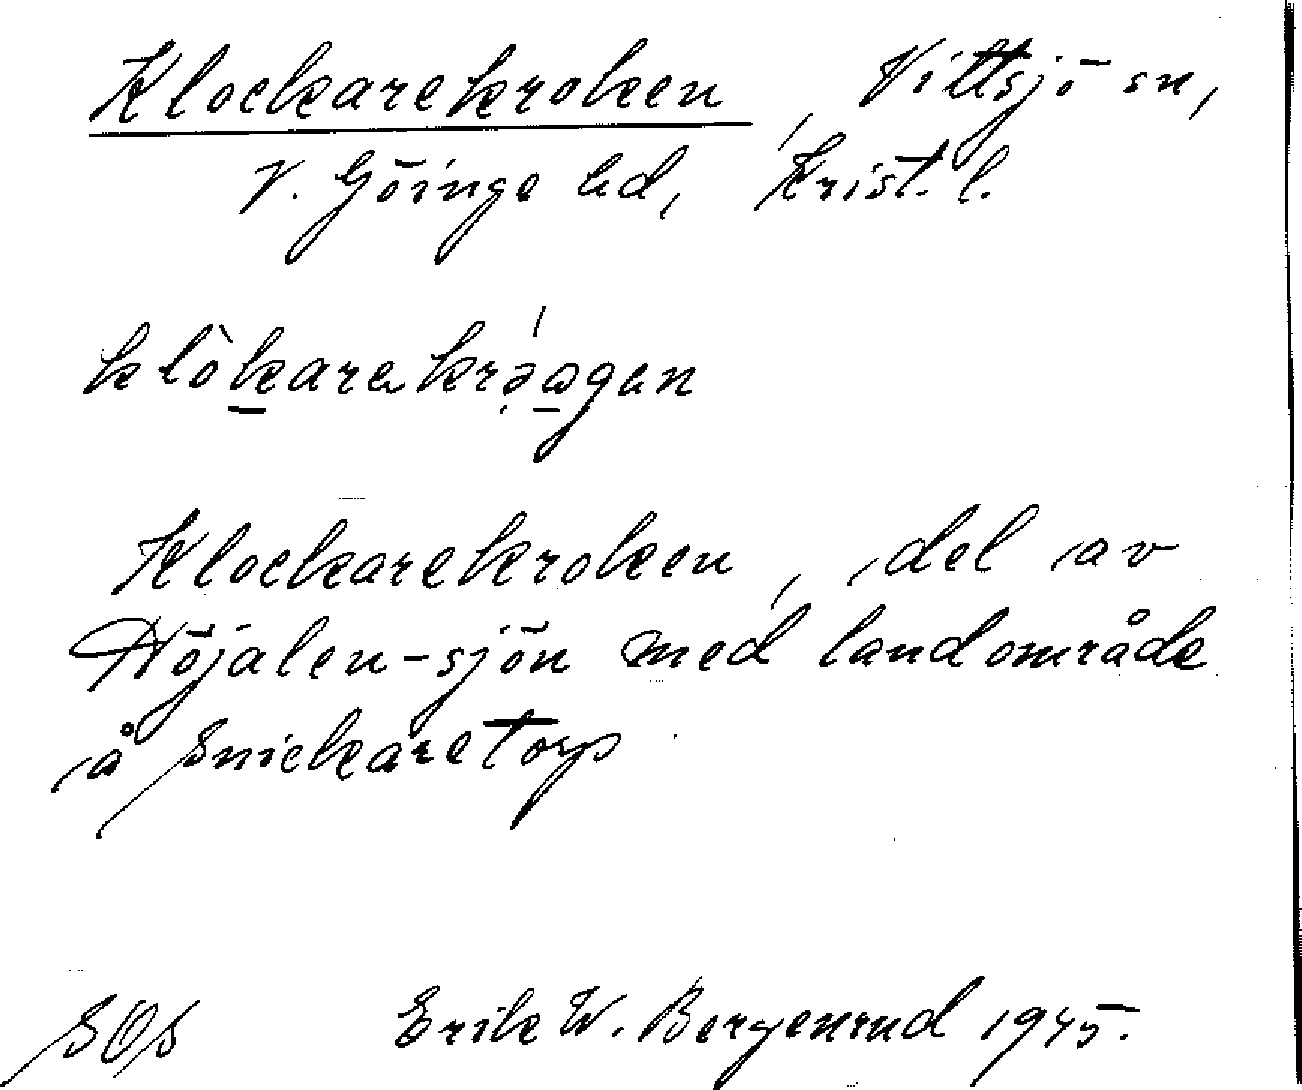 Klockarekroken, Vittsjö sn,
V. Göinge hd, Krist. l.
klòkarekrə́ǝgen
Klockarekroken, del av
Höjalen-sjön med landområde
å Snickaretorp
SOS Erik W. Bergenrud 1945.